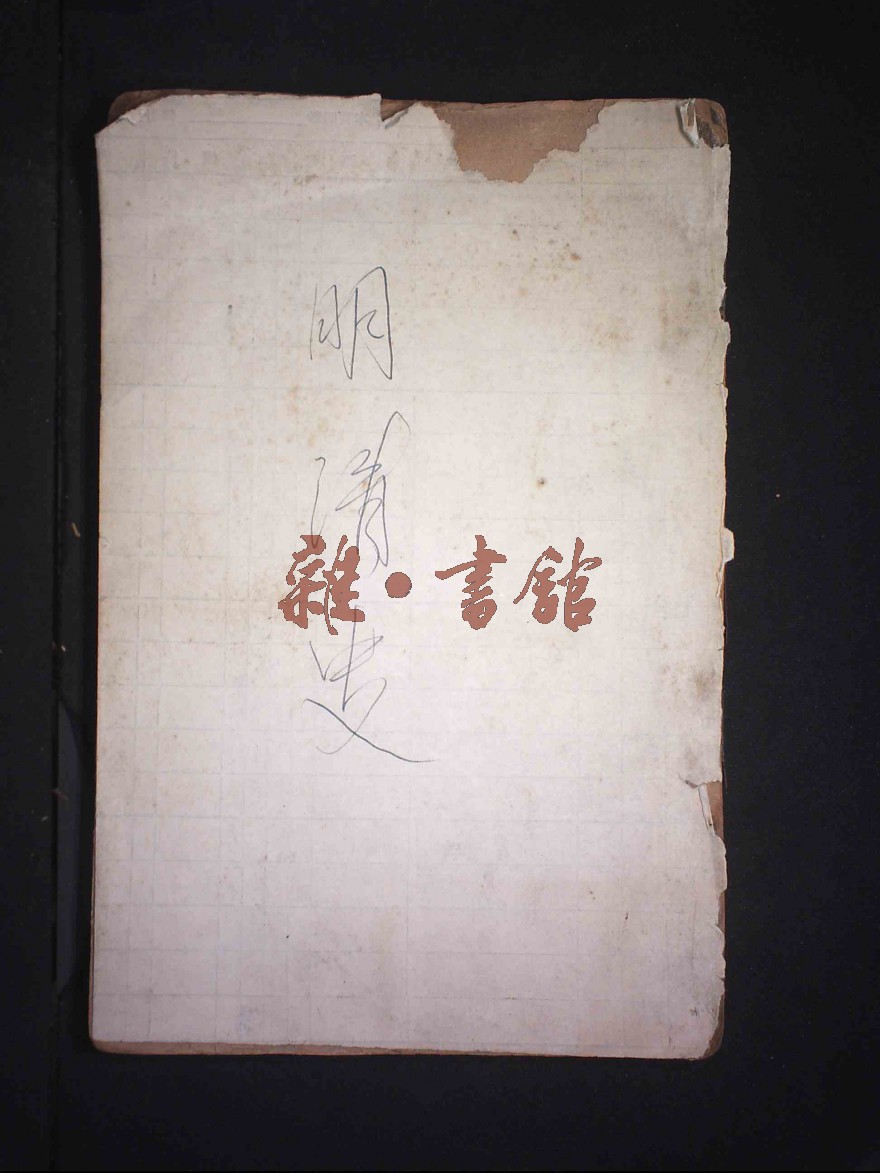 明清史
雜·書館